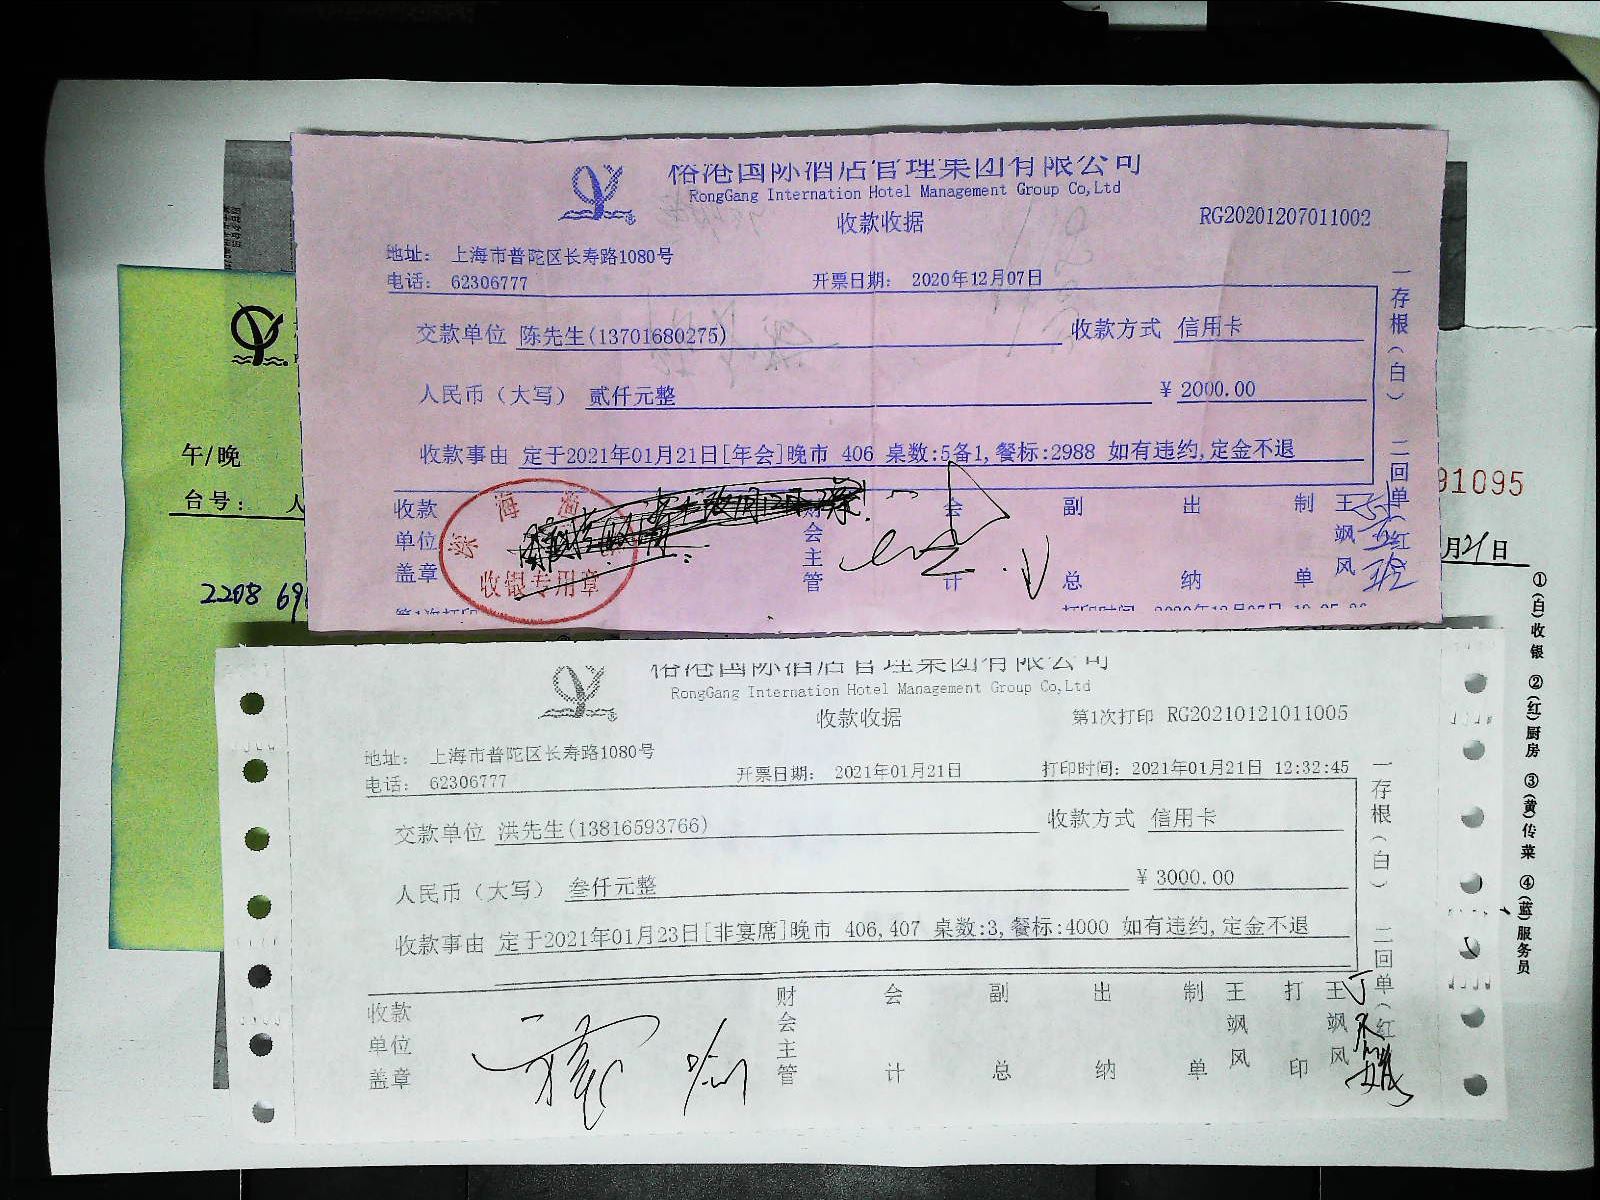 榕港国际酒店管理集团有限公司
RongGang Internation Hotel Management Group Co,Ltd
收款收据
RG20201207011002
地址： 上海市普陀区长寿路1080号
电话： 62306777
开票日期： 2020年12月07日
交款单位 陈先生(13701680275)
收款方式 信用卡
人民币（大写） 贰仟元整
¥ 2000.00
收款事由 定于2021年01月21日[年会]晚市 406 桌数:5备1,餐标:2988 如有违约,定金不退
收款单位盖章
收银专用章
财会主管
会计
副总
出纳
制单
王飒风
一存根（白） 二回单（红
午/晚
台号： 人
2208
91095
月21日
①(白)收银 ②(红)厨房 ③(黄)传菜 ④(蓝)服务员
榕港国际酒店管理集团有限公司
RongGang Internation Hotel Management Group Co,Ltd
收款收据
第1次打印 RG20210121011005
地址： 上海市普陀区长寿路1080号
电话： 62306777
开票日期： 2021年01月21日
打印时间：2021年01月21日 12:32:45
交款单位 洪先生(13816593766)
收款方式 信用卡
人民币（大写） 叁仟元整
¥ 3000.00
收款事由 定于2021年01月23日[非宴席]晚市 406,407 桌数:3,餐标:4000 如有违约,定金不退
收款单位盖章
财会主管
会计
副总
出纳
制单
王飒风
打印
王飒风
一存根（白） 二回单（红